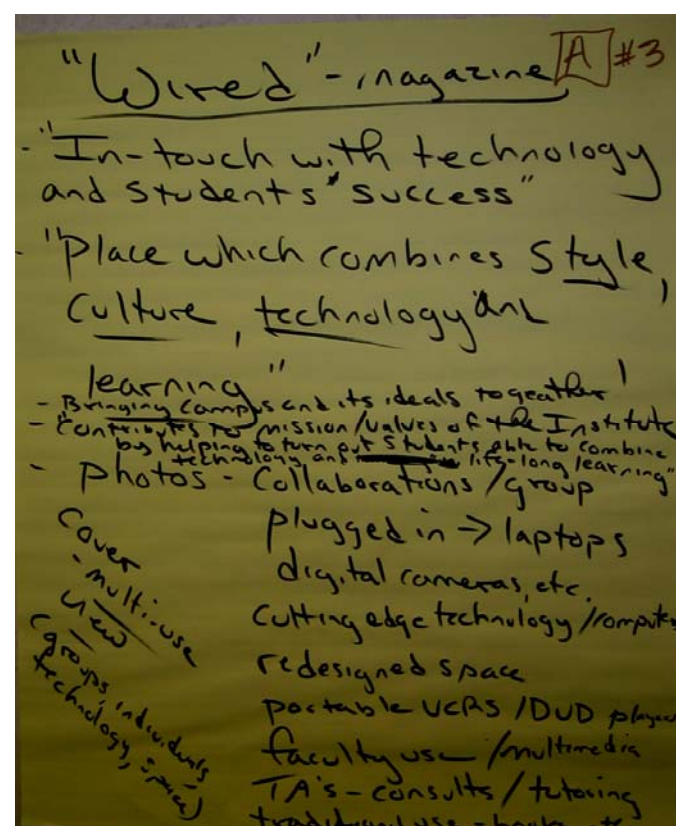 "Wired" - magazine A #3
- "In-touch with technology
and students' success"
- "Place which combines Style,
Culture, technology and
learning"
- Bringing campus and its ideals togeather'
- "Contributes to mission/values of the Institute
by helping to turn out students able to combine
technology and life-long learning"
- photos - Collaborations/group
plugged in → laptops
digital cameras, etc.
Cutting edge technology/computers
redesigned space
portable VCRs/DVD players
faculty use/multimedia
TA's - consults/tutoring
traditional use - books
Cover
- multi-use
view
(groups, individuals,
technology, space)